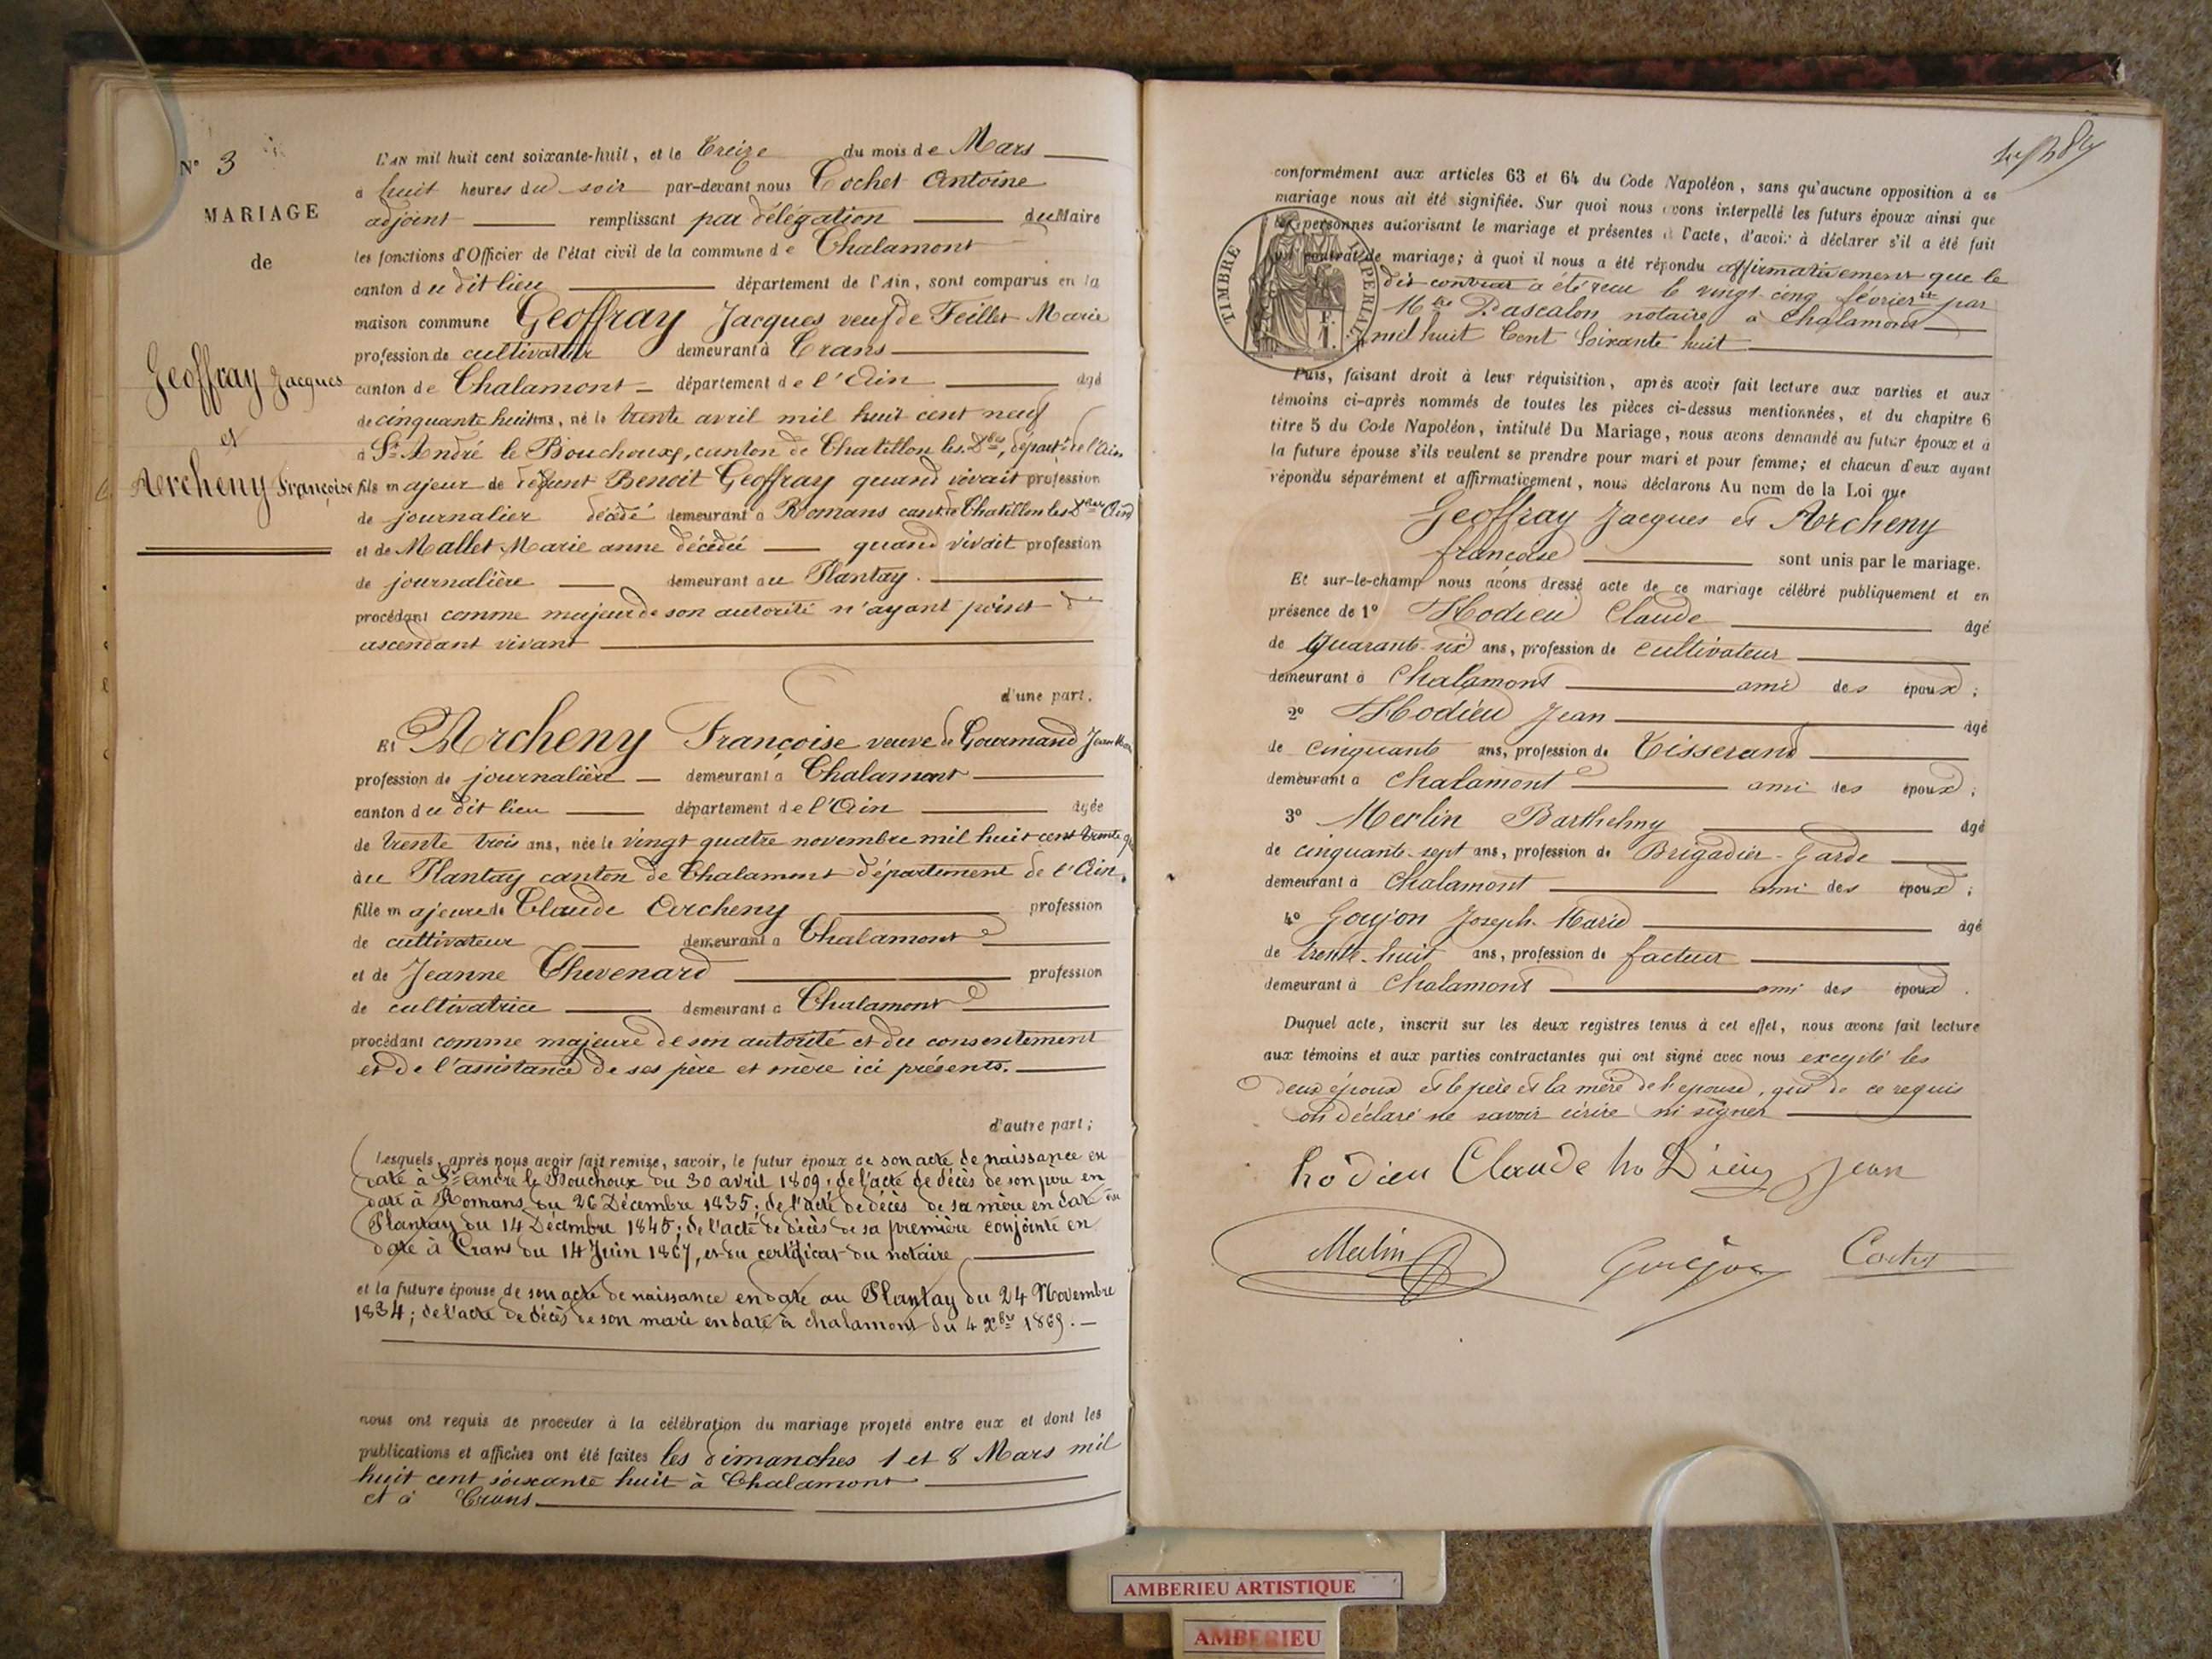 N° 3
MARIAGE
de
Geoffray Jacques
et
Archeny Françoise
L'AN mil huit cent soixante-huit, et le treize du mois de Mars
à huit heures du soir par-devant nous Cochet Antoine
adjoint remplissant par délégation du Maire
les fonctions d'Officier de l'état civil de la commune de Chalamont
canton du dit lieu département de l'Ain, sont comparus en la
maison commune Geoffray Jacques veuf de Feillet Marie
profession de cultivateur demeurant à Crans
canton de Chalamont département de l'Ain âgé
de cinquante huit ans, né le trente avril mil huit cent neuf
à St André le Bouchoux, canton de Chatillon les Dbes, départt de l'Ain
fils majeur de défunt Benoit Geoffray quand vivait profession
de journalier décédé demeurant à Romans cant. de Chatillon les Dbes Ain
et de Mallet Marie anne décédée quand vivait profession
de journalière demeurant au Plantay.
procédant comme majeur de son autorité n'ayant point d'
ascendant vivant
d'une part.
Et Archeny Françoise veuve de Gourmand Jean
profession de journalière demeurant à Chalamont
canton du dit lieu département de l'Ain âgée
de trente trois ans, née le vingt quatre novembre mil huit cent trente
au Plantay canton de Chalamont département de l'Ain.
fille majeure de Claude Archeny profession
de cultivateur demeurant à Chalamont
et de Jeanne Chevenard profession
de cultivatrice demeurant à Chalamont
procédant comme majeure de son autorité et du consentement
et de l'assistance de ses père et mère ici présents.
d'autre part;
Lesquels, après nous avoir fait remise, savoir, le futur époux de son acte de naissance en
date à St André le Bouchoux du 30 avril 1809; de l'acte de décès de son père en
date à Romans du 26 Décembre 1835; de l'acte de décès de sa mère en date au
Plantay du 14 Décembre 1845; de l'acte de décès de sa première conjointe en
date à Crans du 14 Juin 1867, et du certificat du notaire
et la future épouse de son acte de naissance en date au Plantay du 24 Novembre
1834; de l'acte de décès de son mari en date à Chalamont du 4 Xbre
nous ont requis de procéder à la célébration du mariage projeté entre eux et dont les
publications et affiches ont été faites les dimanches 1 et 8 Mars mil
huit cent soixante huit à Chalamont
et à Crans
conformément aux articles 63 et 64 du Code Napoléon, sans qu'aucune opposition à ce
mariage nous ait été signifiée. Sur quoi nous avons interpellé les futurs époux ainsi que
les personnes autorisant le mariage et présentes à l'acte, d'avoir à déclarer s'il a été fait
un contrat de mariage; à quoi il nous a été répondu affirmativement que le
dit contrat a été reçu le vingt cinq février par
Mtre Pascalon notaire à Chalamont
mil huit cent soixante huit
TIMBRE IMPERIAL
Puis, faisant droit à leur réquisition, après avoir fait lecture aux parties et aux
témoins ci-après nommés de toutes les pièces ci-dessus mentionnées, et du chapitre 6
titre 5 du Code Napoléon, intitulé Du Mariage, nous avons demandé au futur époux et à
la future épouse s'ils veulent se prendre pour mari et pour femme; et chacun d'eux ayant
répondu séparément et affirmativement, nous déclarons Au nom de la Loi que
Geoffray Jacques et Archeny
françoise sont unis par le mariage.
Et sur-le-champ nous avons dressé acte de ce mariage célébré publiquement et en
présence de 1° Hodieu Claude âgé
de quarante-six ans, profession de cultivateur
demeurant à Chalamont ami des époux;
2° Hodieu Jean âgé
de cinquante ans, profession de Tisserand
demeurant à Chalamont ami des époux;
3° Merlin Barthelmy âgé
de cinquante-sept ans, profession de Brigadier-Garde
demeurant à Chalamont ami des époux;
4° Goujon Joseph-Marie âgé
de trente-huit ans, profession de facteur
demeurant à Chalamont ami des époux.
Duquel acte, inscrit sur les deux registres tenus à cet effet, nous avons fait lecture
aux témoins et aux parties contractantes qui ont signé avec nous excepté les
deux époux et le père et la mère de l'épouse, qui de ce requis
ont déclaré ne savoir écrire ni signer
hodieu Claude ho Dieu Jean
Merlin Goujon Cochet
AMBERIEU ARTISTIQUE
AMBERIEU